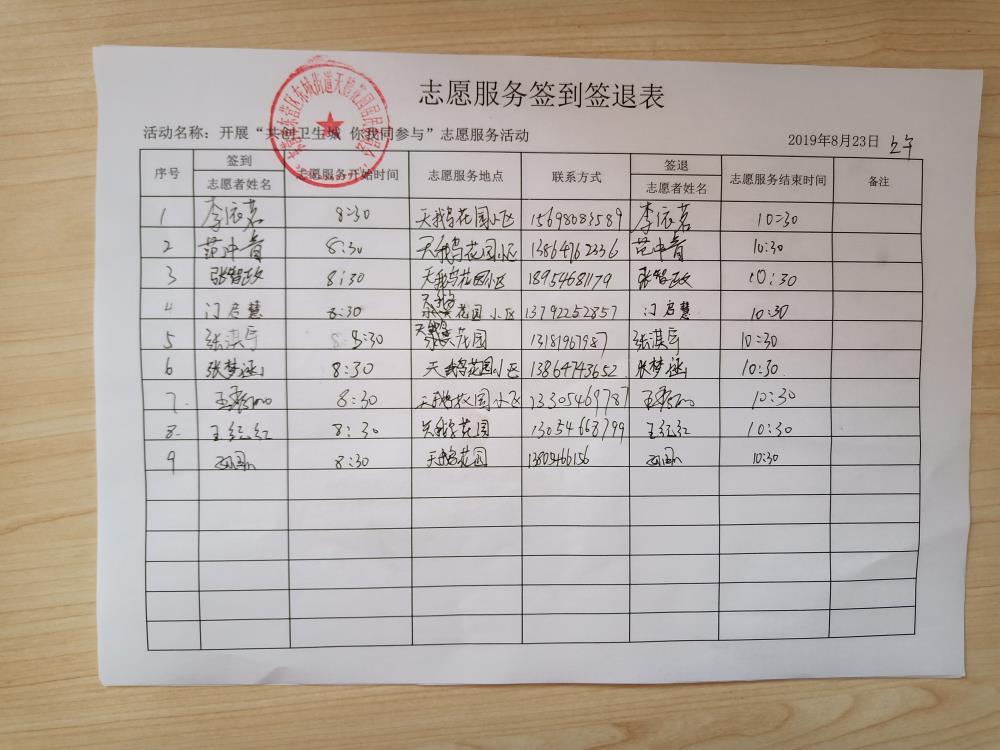 志愿服务签到签退表
活动名称：开展“共创卫生城 你我同参与”志愿服务活动 2019年8月23日 上午
序号 签到 志愿服务开始时间 志愿服务地点 联系方式 签退 志愿服务结束时间 备注
志愿者姓名 志愿者姓名
1 李依茗 8:30 天鹅花园小区 15698083589 李依茗 10:30
2 范冲霄 8:30 天鹅花园小区 13864762336 范冲霄 10:30
3 张智政 8:30 天鹅花园小区 18954681179 张智政 10:30
4 门启慧 8:30 天鹅花园小区 13792252857 门启慧 10:30
5 张淇宁 8:30 天鹅花园 13181967987 张淇宁 10:30
6 张梦涵 8:30 天鹅花园小区 13864743652 张梦涵 10:30
7. 8:30 天鹅花园小区 13305469787 10:30
8. 王红红 8:30 天鹅花园 13054668799 王红红 10:30
9 8:30 天鹅花园 1380546156 10:30